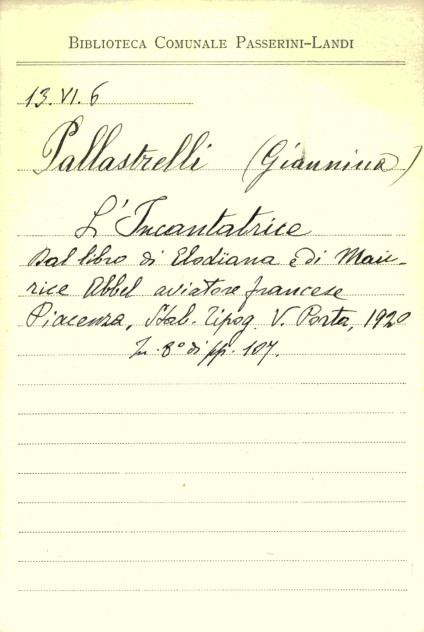 BIBLIOTECA COMUNALE PASSERINI-LANDI
13.VI.6
Pallastrelli (Giannina)
L'Incantatrice
Dal libro di Elodiana e di Mau-
rice Abbel aviatore francese
Piacenza, Stab. Tipog. V. Porta, 1920
In-8° di pp. 107.